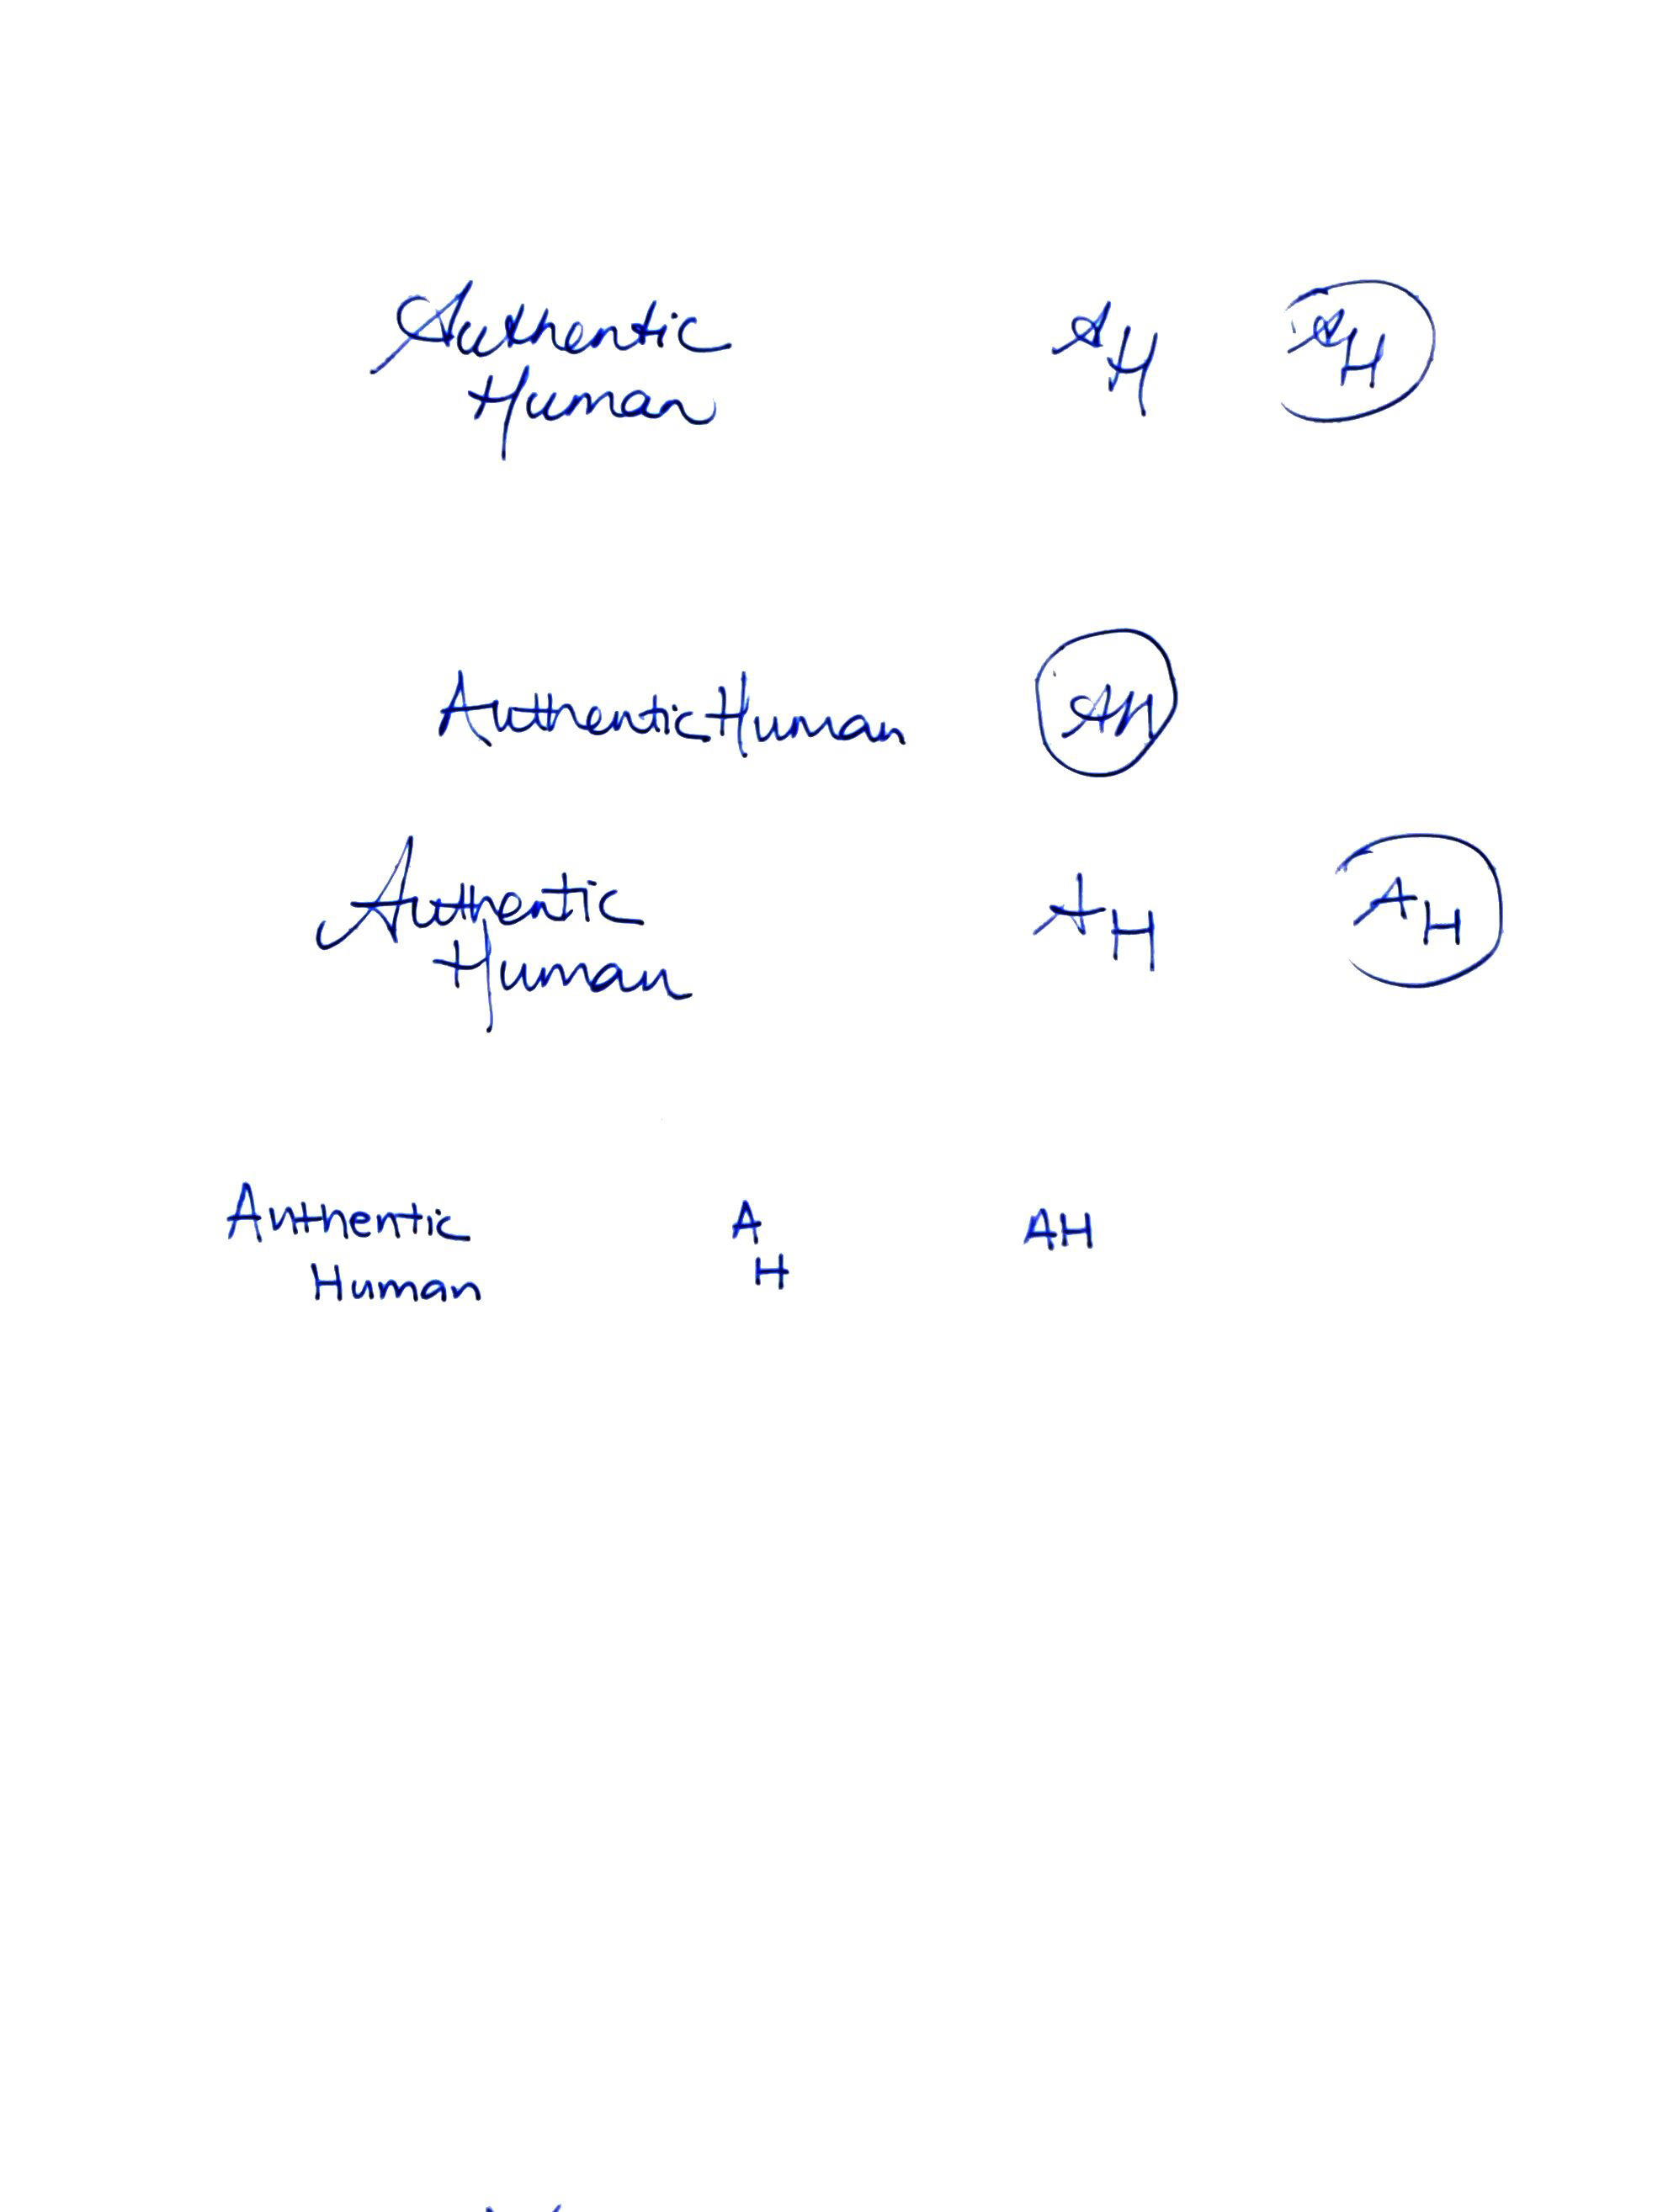 Authentic
Human
A
H
A
H
AuthenticHuman
AH
Authentic
Human
A
H
A
H
Authentic
Human
A
H
AH